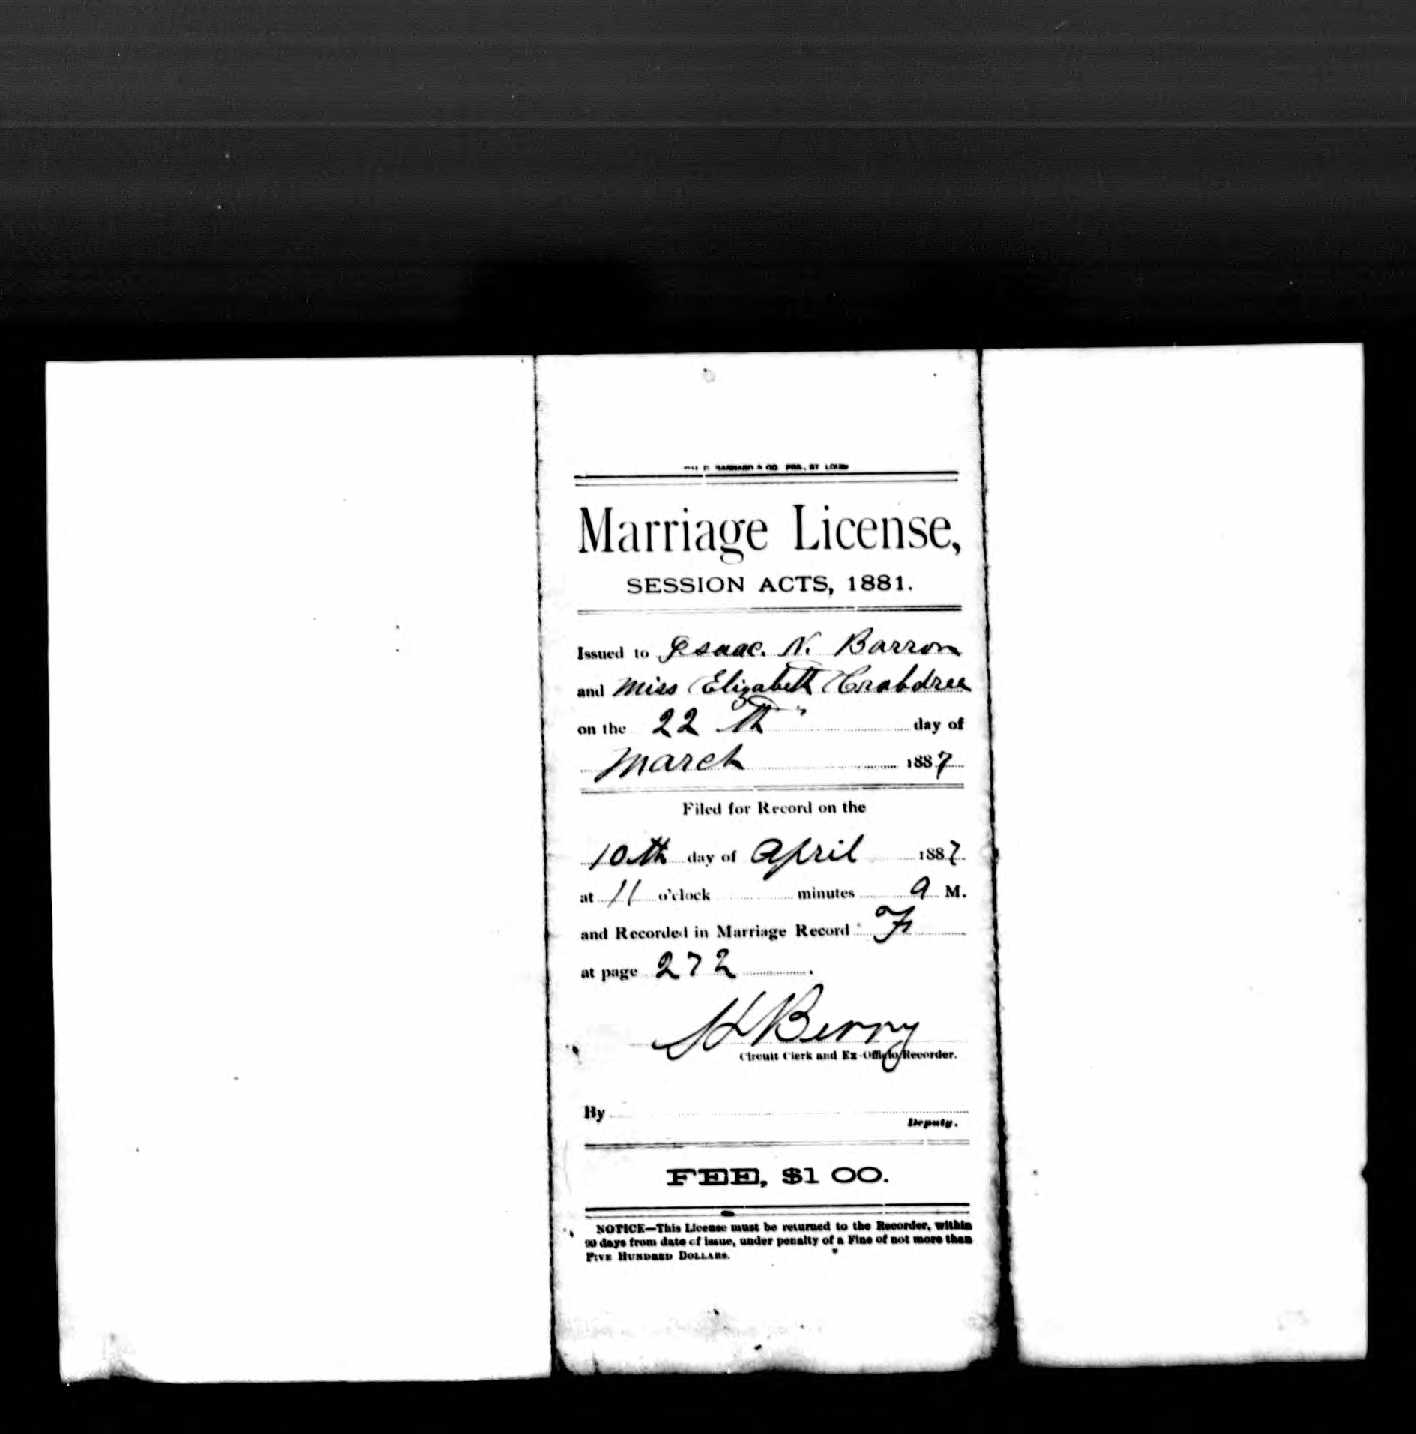 BARNARD & CO. PRS., ST. LOUIS
Marriage License,
SESSION ACTS, 1881.
Issued to Isaac. N. Barron
and Miss Elizabeth Crabdree
on the 22th day of
March 1887
Filed for Record on the
10th day of April 1887
at 11 o'clock minutes a M.
and Recorded in Marriage Record F
at page 272.
Berry
Circuit Clerk and Ex-Officio Recorder.
By
Deputy.
FEE, $1 00.
NOTICE—This License must be returned to the Recorder, within
90 days from date of issue, under penalty of a Fine of not more than
FIVE HUNDRED DOLLARS.